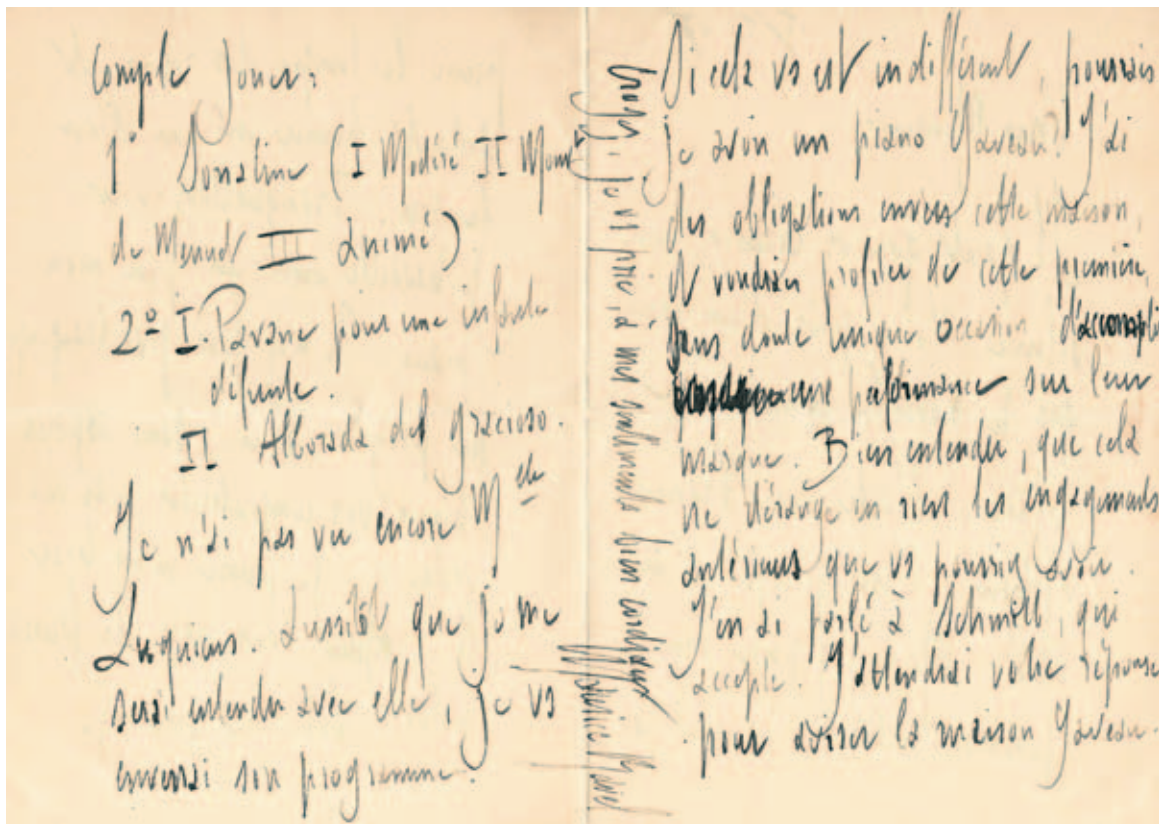 compte jouer:
1° Sonatine (I Modéré II Mouvt
de Menuet III Animé)
2º I. Pavane pour une infante
défunte.
II Alborada del gracioso.
Je n'ai pas vu encore Melle
Luquiens. Aussitôt que je me
serai entendu avec elle, je vs
enverrai son programme.
Si cela vs est indifférent, pourrais
je avoir un piano Gaveau? J'ai
des obligations envers cette maison,
et voudrais profiter de cette première,
sans doute unique occasion d'accomplir
une performance sur leur
marque. Bien entendu, que cela
ne dérange en rien les engagements
antérieurs que vs pourriez avoir.
J'en ai parlé à Schmitt, qui
accepte. J'attendrai votre réponse
pour aviser la maison Gaveau.
Croyez, je vs prie, à mes sentiments bien cordiaux
Maurice Ravel